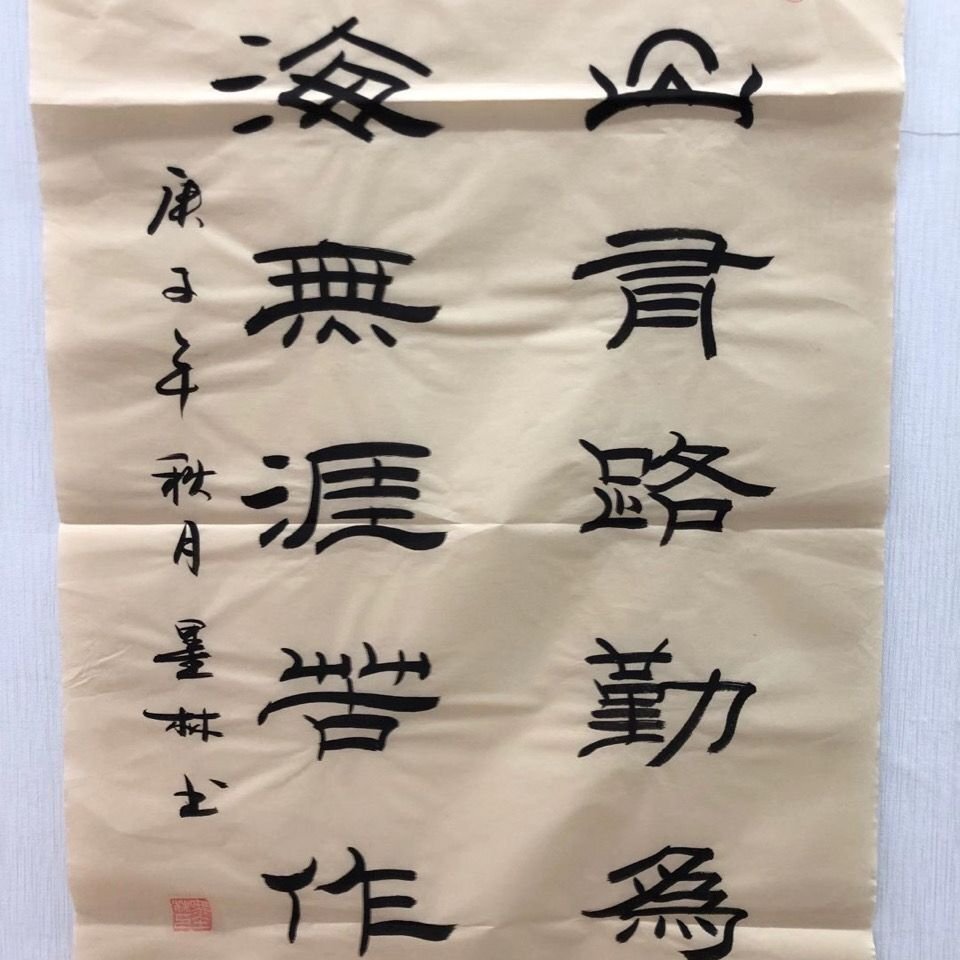 山有路勤為
海無涯苦作
庚子年秋月墨林书